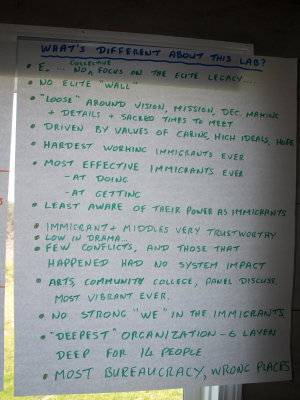 WHAT'S DIFFERENT ABOUT THIS LAB?
COLLECTIVE
• E. ... NO FOCUS ON THE ELITE LEGACY....
• NO ELITE "WALL"
• "LOOSE" AROUND VISION, MISSION, DEC. MAKING
+ DETAILS + SACRED TIMES TO MEET
• DRIVEN BY VALUES OF CARING, HIGH IDEALS, HOPE
• HARDEST WORKING IMMIGRANTS EVER
• MOST EFFECTIVE IMMIGRANTS EVER
- AT DOING
- AT GETTING
• LEAST AWARE OF THEIR POWER AS IMMIGRANTS
• IMMIGRANT + MIDDLES VERY TRUSTWORTHY
• LOW IN DRAMA...
• FEW CONFLICTS, AND THOSE THAT
HAPPENED HAD NO SYSTEM IMPACT
• ARTS, COMMUNITY COLLEGE, PANEL DISCUSS.
MOST VIBRANT EVER.
• NO STRONG "WE" IN THE IMMIGRANTS
• "DEEPEST" ORGANIZATION - 6 LAYERS
DEEP FOR 14 PEOPLE
• MOST BUREAUCRACY, WRONG PLACES